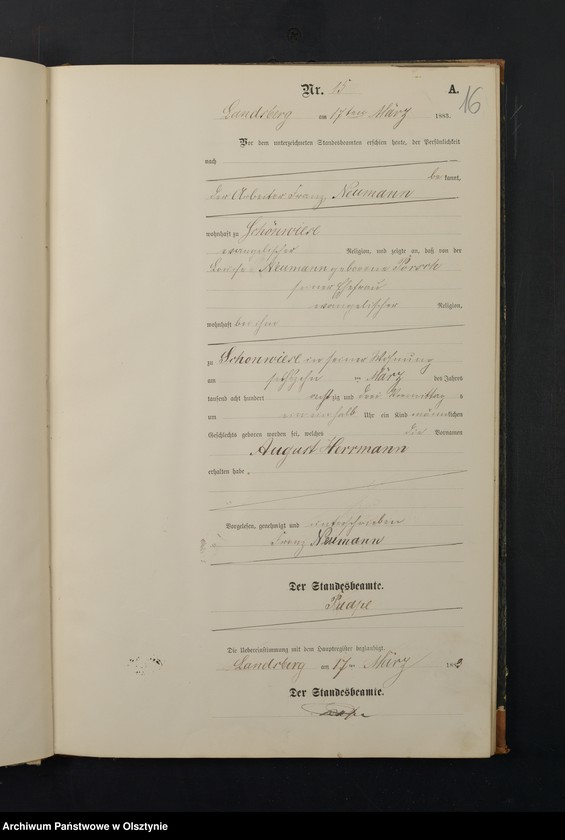 16
Nr. 15 A.
Landsberg am 17ten März 1883.
Vor dem unterzeichneten Standesbeamten erschien heute, der Persönlichkeit
nach
be kannt,
der Arbeiter Franz Neumann
wohnhaft zu Schönwiese
evangelischer Religion, und zeigte an, daß von der
Neumann geborene
seiner Ehefrau
evangelischer Religion,
wohnhaft bei ihm
zu Schönwiese in seiner Wohnung
am sechszehn ten März des Jahres
tausend acht hundert acht zig und drei Vormittag s
um ein einhalb Uhr ein Kind männlichen
Geschlechts geboren worden sei, welches die Vornamen
August Herrmann
erhalten habe.
Vorgelesen, genehmigt und unterschrieben
Franz Neumann
Der Standesbeamte.
Die Uebereinstimmung mit dem Hauptregister beglaubigt.
Landsberg am 17ten März 1883
Der Standesbeamte.
Archiwum Państwowe w Olsztynie